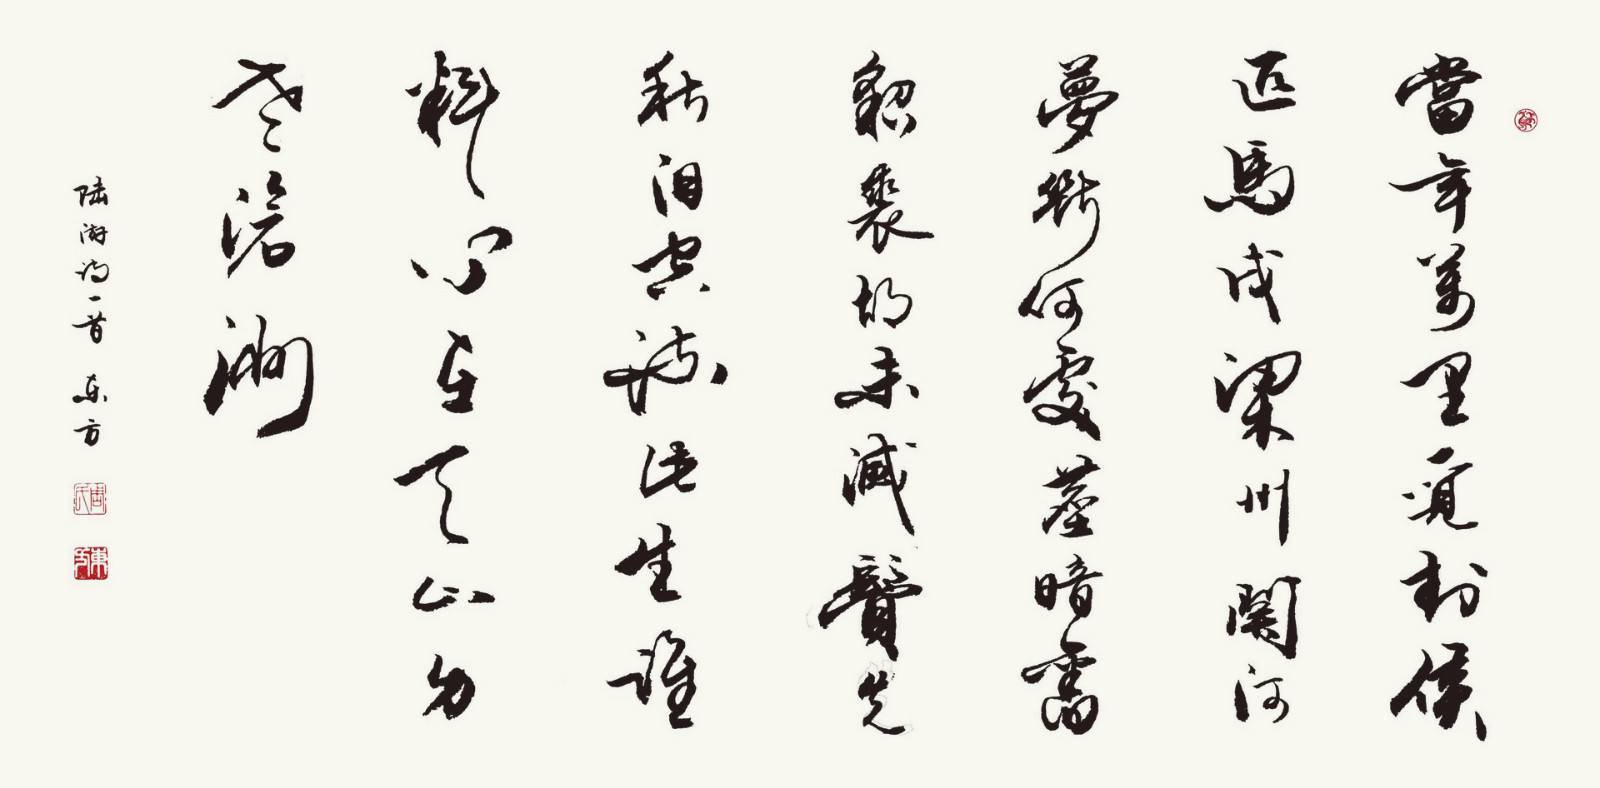 當年萬里覓封侯
匹馬戍梁州関河
夢斷何處塵暗舊
貂裘胡未滅鬢先
秋泪空流此生誰
料心在天山身
老滄洲
陸游詩一首 東方
周氏
東方